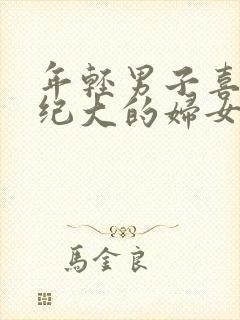 年輕男子喜
纪大的婦女
馬金良